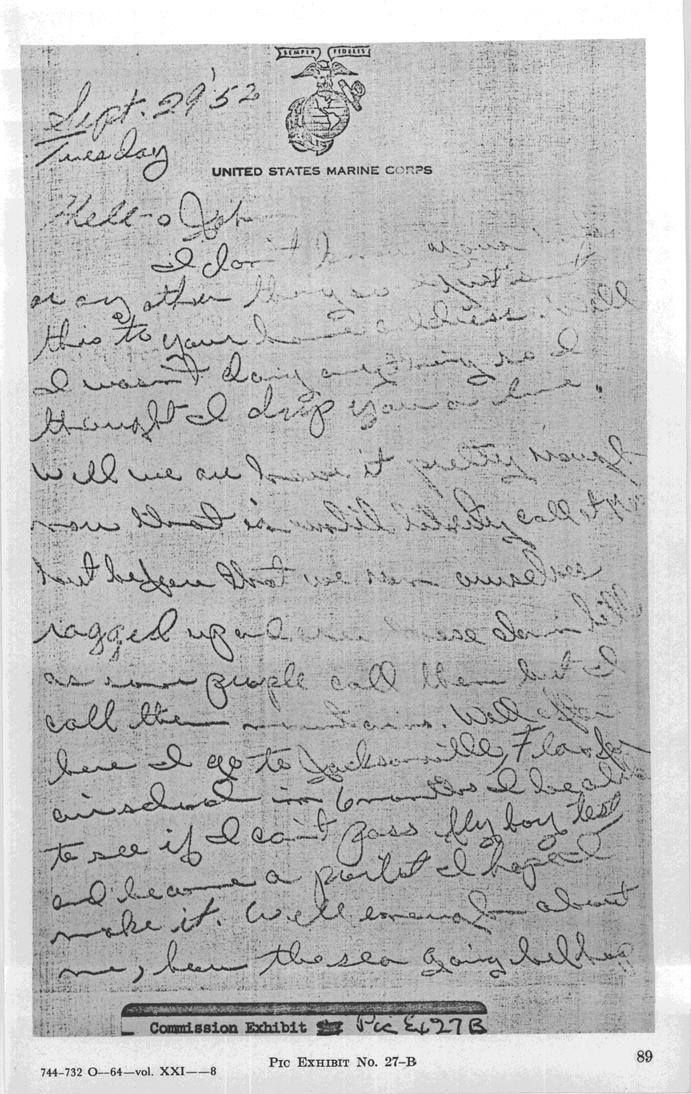 SEMPER FIDELIS
Sept. 29 '52
Tuesday
UNITED STATES MARINE CORPS
Hell-o
I don't know your
or any other
this to your home address. Well
I wasn't doing anything so I
thought I drop you a line.
Well we all have it pretty rough
now that is until liberty call at
but before that we run ourselves
ragged up and over these darn hills
as some people call them but I
call them mountains. Well after
here I go to Jacksonville, Fla for
airschool in 6 months I be able
to see if I can't pass fly boy test
and become a poilet I hope I
make it. Well enough about
me, how the sea going bellhop
Commission Exhibit Pic Ex 27B
744-732 O—64—vol. XXI——8
PIC EXHIBIT NO. 27-B
89